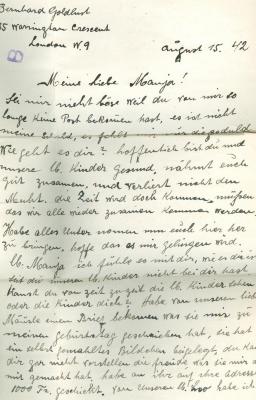 Bernhard Goldlust
35 Warrington Crescent
London W.9
August 15. 42
Meine liebe Manja!
Sei mir nicht böse weil du von mir so
lange keine Post bekomen hast, es ist nicht
meine Schuld, es fehlt mir die geduld
Wie geht es dir? hoffentlich bist du und
unsere lb. Kinder Gesund, nährnt euch
gut zusamen, und verliert nicht den
Mucht. die Zeit wird doch komen, müßen
das wir alle wieder zusamen kommen werden.
Habe alles Unter nomen um euch hier her
zu bringen, hoffe das es mir gelingen wird.
Lb. Manja ich fühle es mit dir, wie es dir ist
seit du unsere lb. Kinder nicht bei dir hast
Kanst du von Zeit zu Zeit die lb. Kinder sehen
oder die Kinder dich? Habe von unseren lieben
Mäusle einen Brief bekomen was sie mir zu
meinen geburtstag geschrieben hat, sie hat
ein selbst gemahltes Bildchen beigelegt, du kanst
dir gar nicht vorstellen die freude was sie mir
mir gemacht hat, habe an ihr auf ihre Adresse
1000 Fr. geschickt, von unseren lb. habe ich